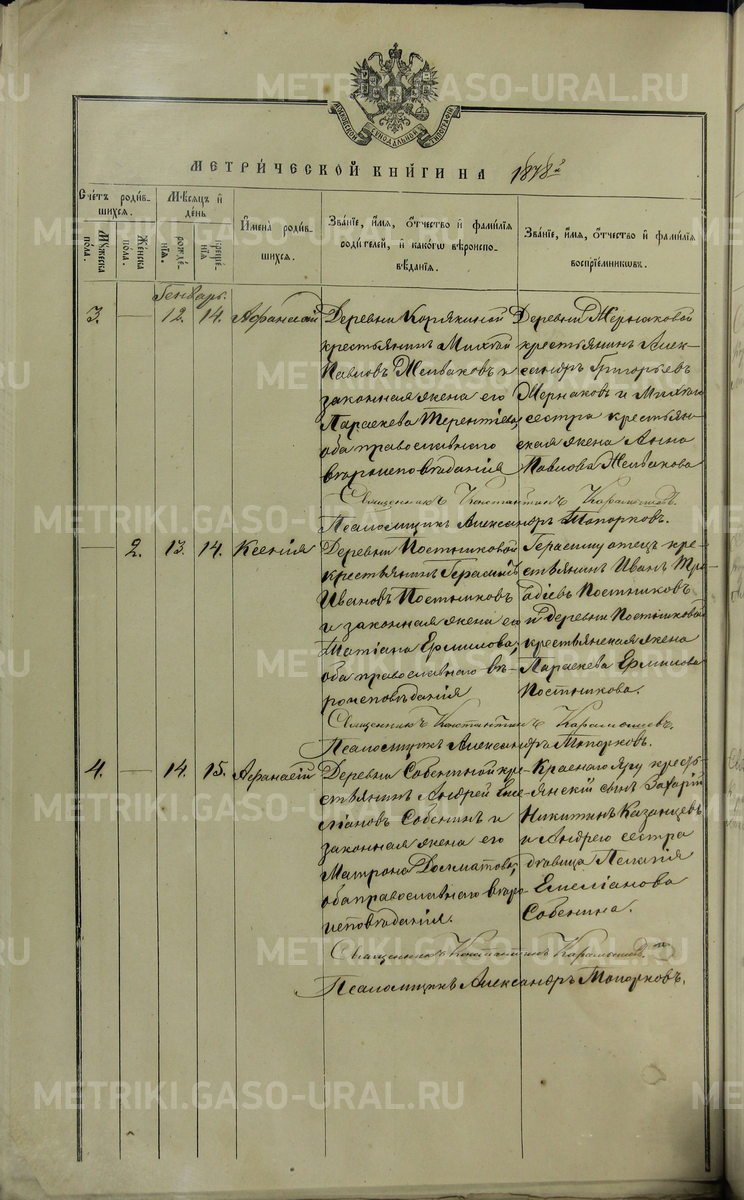 МЕТРИ́ЧЕСКОЙ КНИ́ГИ НА 1878 г.
Сче́тъ роди́в-
шихся.
Мꙋжеска
пола.
Женска
пола.
Мѣ́сяцъ и҆
де́нь
рожде́-
нїѧ.
креще́-
нїѧ
И҆мена̀ роди́в-
шихся.
Зва́нїе, и҆́мѧ, ѻ҆́тчество и҆ фами́лїѧ
роди́телей, и҆ како́гѡ вѣроиспо-
вѣ́данїѧ.
Зва́нїе, и҆́мѧ, ѻ҆́тчество и҆ фами́лїѧ
воспрїе́мникѡвъ.
Генварь.
3. — 12. 14. Афанасій
Деревни Корякиной
крестьянинъ Михаилъ
Павловъ Желваковъ и
законная жена его
Параскева Терентіева,
оба православнаго
вѣроисповѣданія
Деревни Жернаковой
крестьянинъ Алек-
сандръ Григорьевъ
Жернаковъ и Михаила
сестра крестьян-
ская жена Анна
Павлова Желвакова
Священникъ Константинъ
Псаломщикъ Александръ Топорковъ.
— 2. 13. 14. Ксенія
Деревни Постниковой
крестьянинъ Герасимъ
Ивановъ Постниковъ
и законная жена его
Татіана Ермилова,
оба православнаго вѣ-
роисповѣданія
Герасиму отецъ кре-
стьянинъ Иванъ
Постниковъ
и деревни Постниковой
крестьянская жена
Параскева Ермилова
Постникова.
Священникъ Константинъ
Псаломщикъ Александръ Топорковъ.
4. — 14. 15. Афанасій
Деревни Собениной кре-
стьянинъ Андрей Еме-
ліановъ Собенинъ и
законная жена его
Матрона Долматова,
оба православнаго вѣро-
исповѣданія.
Краснаго Яру кресть-
янскій сынъ Захарій
Никитинъ Казанцевъ
и Андрею сестра
дѣвица Пелагія
Емеліанова
Собенина.
Священникъ Константинъ
Псаломщикъ Александръ Топорковъ.
METRIKI.GASO-URAL.RU